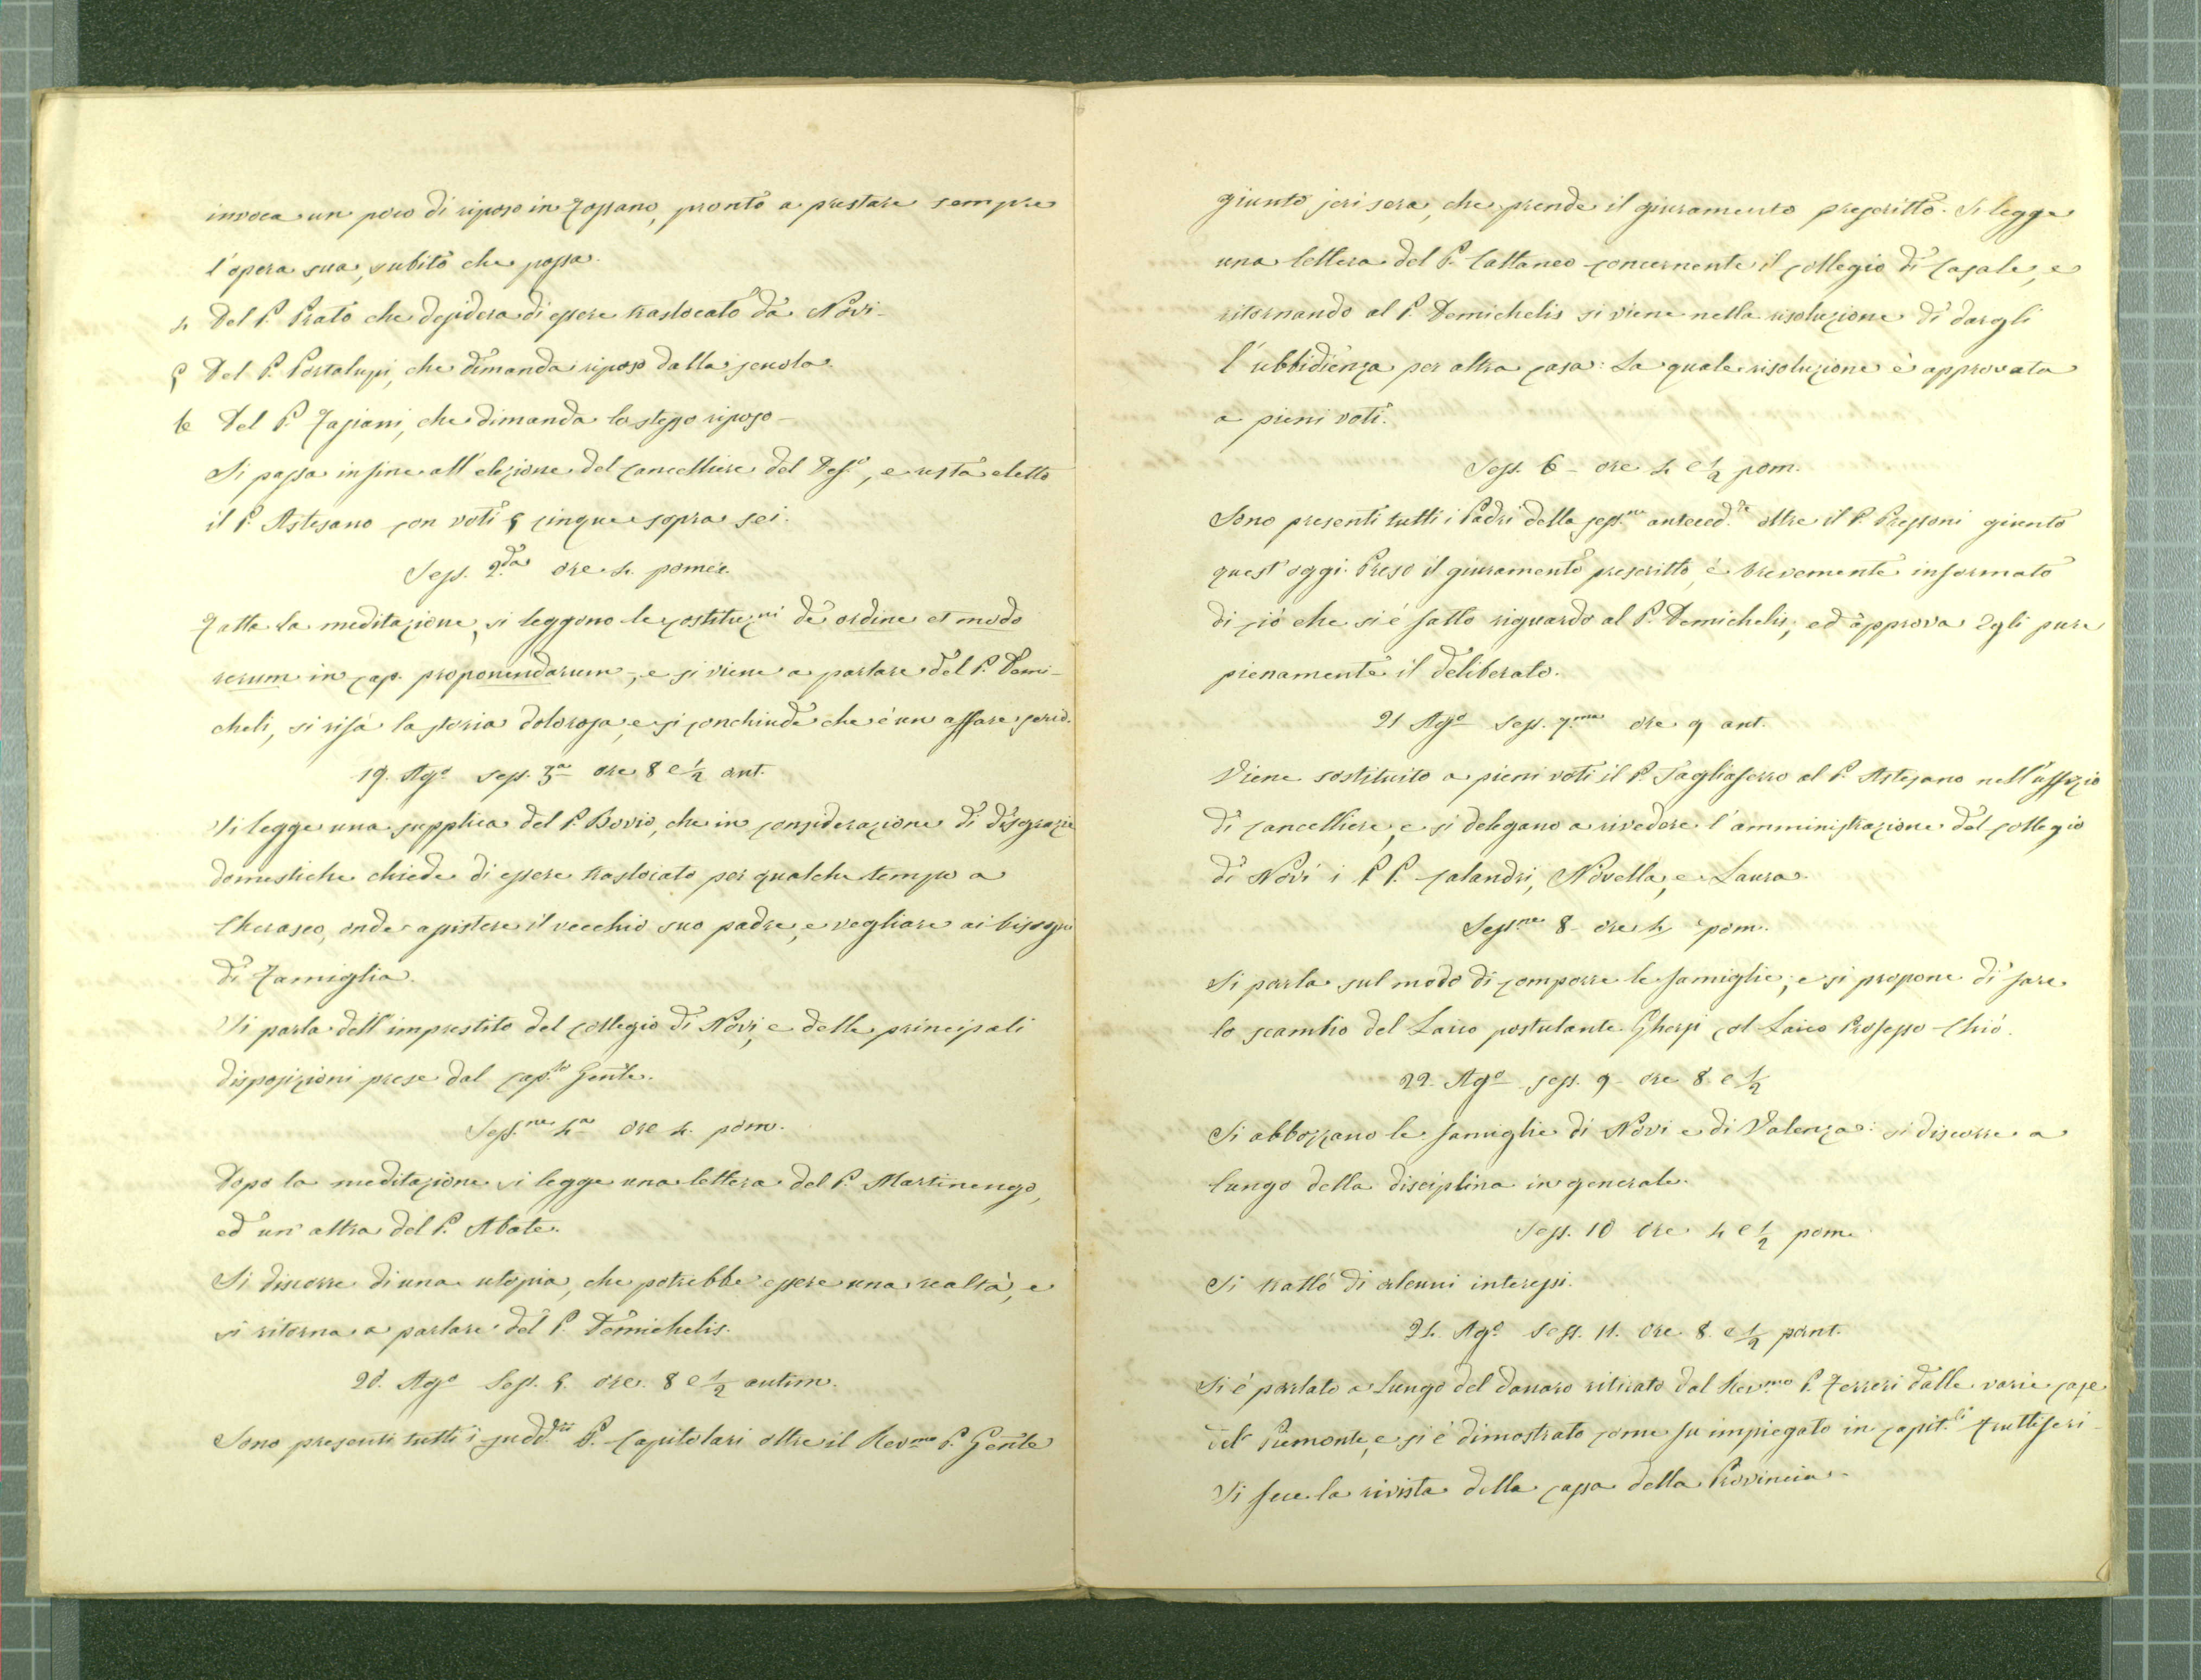 invoca un poco di riposo in Fossano, pronto a prestare sempre
l'opera sua, subito che possa.
4 Del P. Prato che desidera di essere traslocato da Novi -
5 Del P. Portalupi, che dimanda riposo dalla scuola.
6 Del P. Fasiani, che dimanda lo stesso riposo -
Si passa infine all'elezione del cancelliere del Def.o, e resta eletto
il P. Astesano con voti 5 cinque sopra sei.
Sess. 2.da ore 4. pomer.
Fatta la meditazione, si leggono le costituz.ni de ordine et modo
rerum in cap. proponendarum, e si viene a parlare del P. Demi-
cheli, si rifà la storia dolorosa, e si conchiude che è un affare serio.
19. Ag.o sess. 3.a ore 8 e 1/2 ant.
Si legge una supplica del P. Bovio, che in considerazione di disgrazie
domestiche chiede di essere traslocato per qualche tempo a
Cherasco, onde assistere il vecchio suo padre, e vegliare ai bisogni
di Famiglia.
Si parla dell'imprestito del collegio di Novi, e delle principali
disposizioni prese dal cap.lo Gen̄le.
Sess.ne 4.a ore 4. pom.
Dopo la meditazione si legge una lettera del P. Martinengo,
ed un'altra del P. Abate.
Si discorre di una utopia, che potrebbe essere una realtà, e
si ritorna a parlare del P. Demichelis.
20. Ag.o Sess. 5. ore. 8 e 1/2 antim.
Sono presenti tutti i sudd.ti P. Capitolari oltre il Rev.mo P. Gen̄le
giunto jeri sera, che prende il giuramento prescritto. Si legge
una lettera del P. Cattaneo concernente il collegio di Casale, e
ritornando al P. Demichelis si viene nella risoluzione di dargli
l'ubbidienza per altra casa: La quale risoluzione è approvata
a pieni voti.
Sess. 6 - ore 4 e 1/2 pom.
Sono presenti tutti i Padri della sess.ne anteced.te oltre il P. Pressoni giunto
quest'oggi. Preso il giuramento prescritto, è brevemente informato
di ciò che si è fatto riguardo al P. Demichelis; ed approva Egli pure
pienamente il deliberato.
21 Ag.o Sess. 7.ma ore 9 ant.
Viene sostituito a pieni voti il P. Tagliaferro al P. Astesano nell'uffizio
di cancelliere, e si delegano a rivedere l'amministrazione del collegio
di Novi i P P. Calandri, Novella, e Laura.
Sess.ne 8 - ore 4 pom.
Si parla sul modo di comporre le famiglie; e si propone di fare
lo scambio del Laico postulante Ghersi col Laico Professo Chiò.
22. Ag.o sess. 9 - ore 8. e 1/2
Si abbozzano le famiglie di Novi e di Valenza: si discorre a
lungo della disciplina in generale.
Sess. 10 ore 4 e 1/2 pom.
Si trattò di alcuni interessi.
24. Ag.o Sess. 11. ore 8. e 1/2 ant.
Si è parlato a Lungo del danaro ritirato dal Rev.mo P. Ferreri dalle varie case
del Piemonte, e si è dimostrato come fu impiegato in capit.li fruttiferi -
Si fece la rivista della cassa della Provincia -